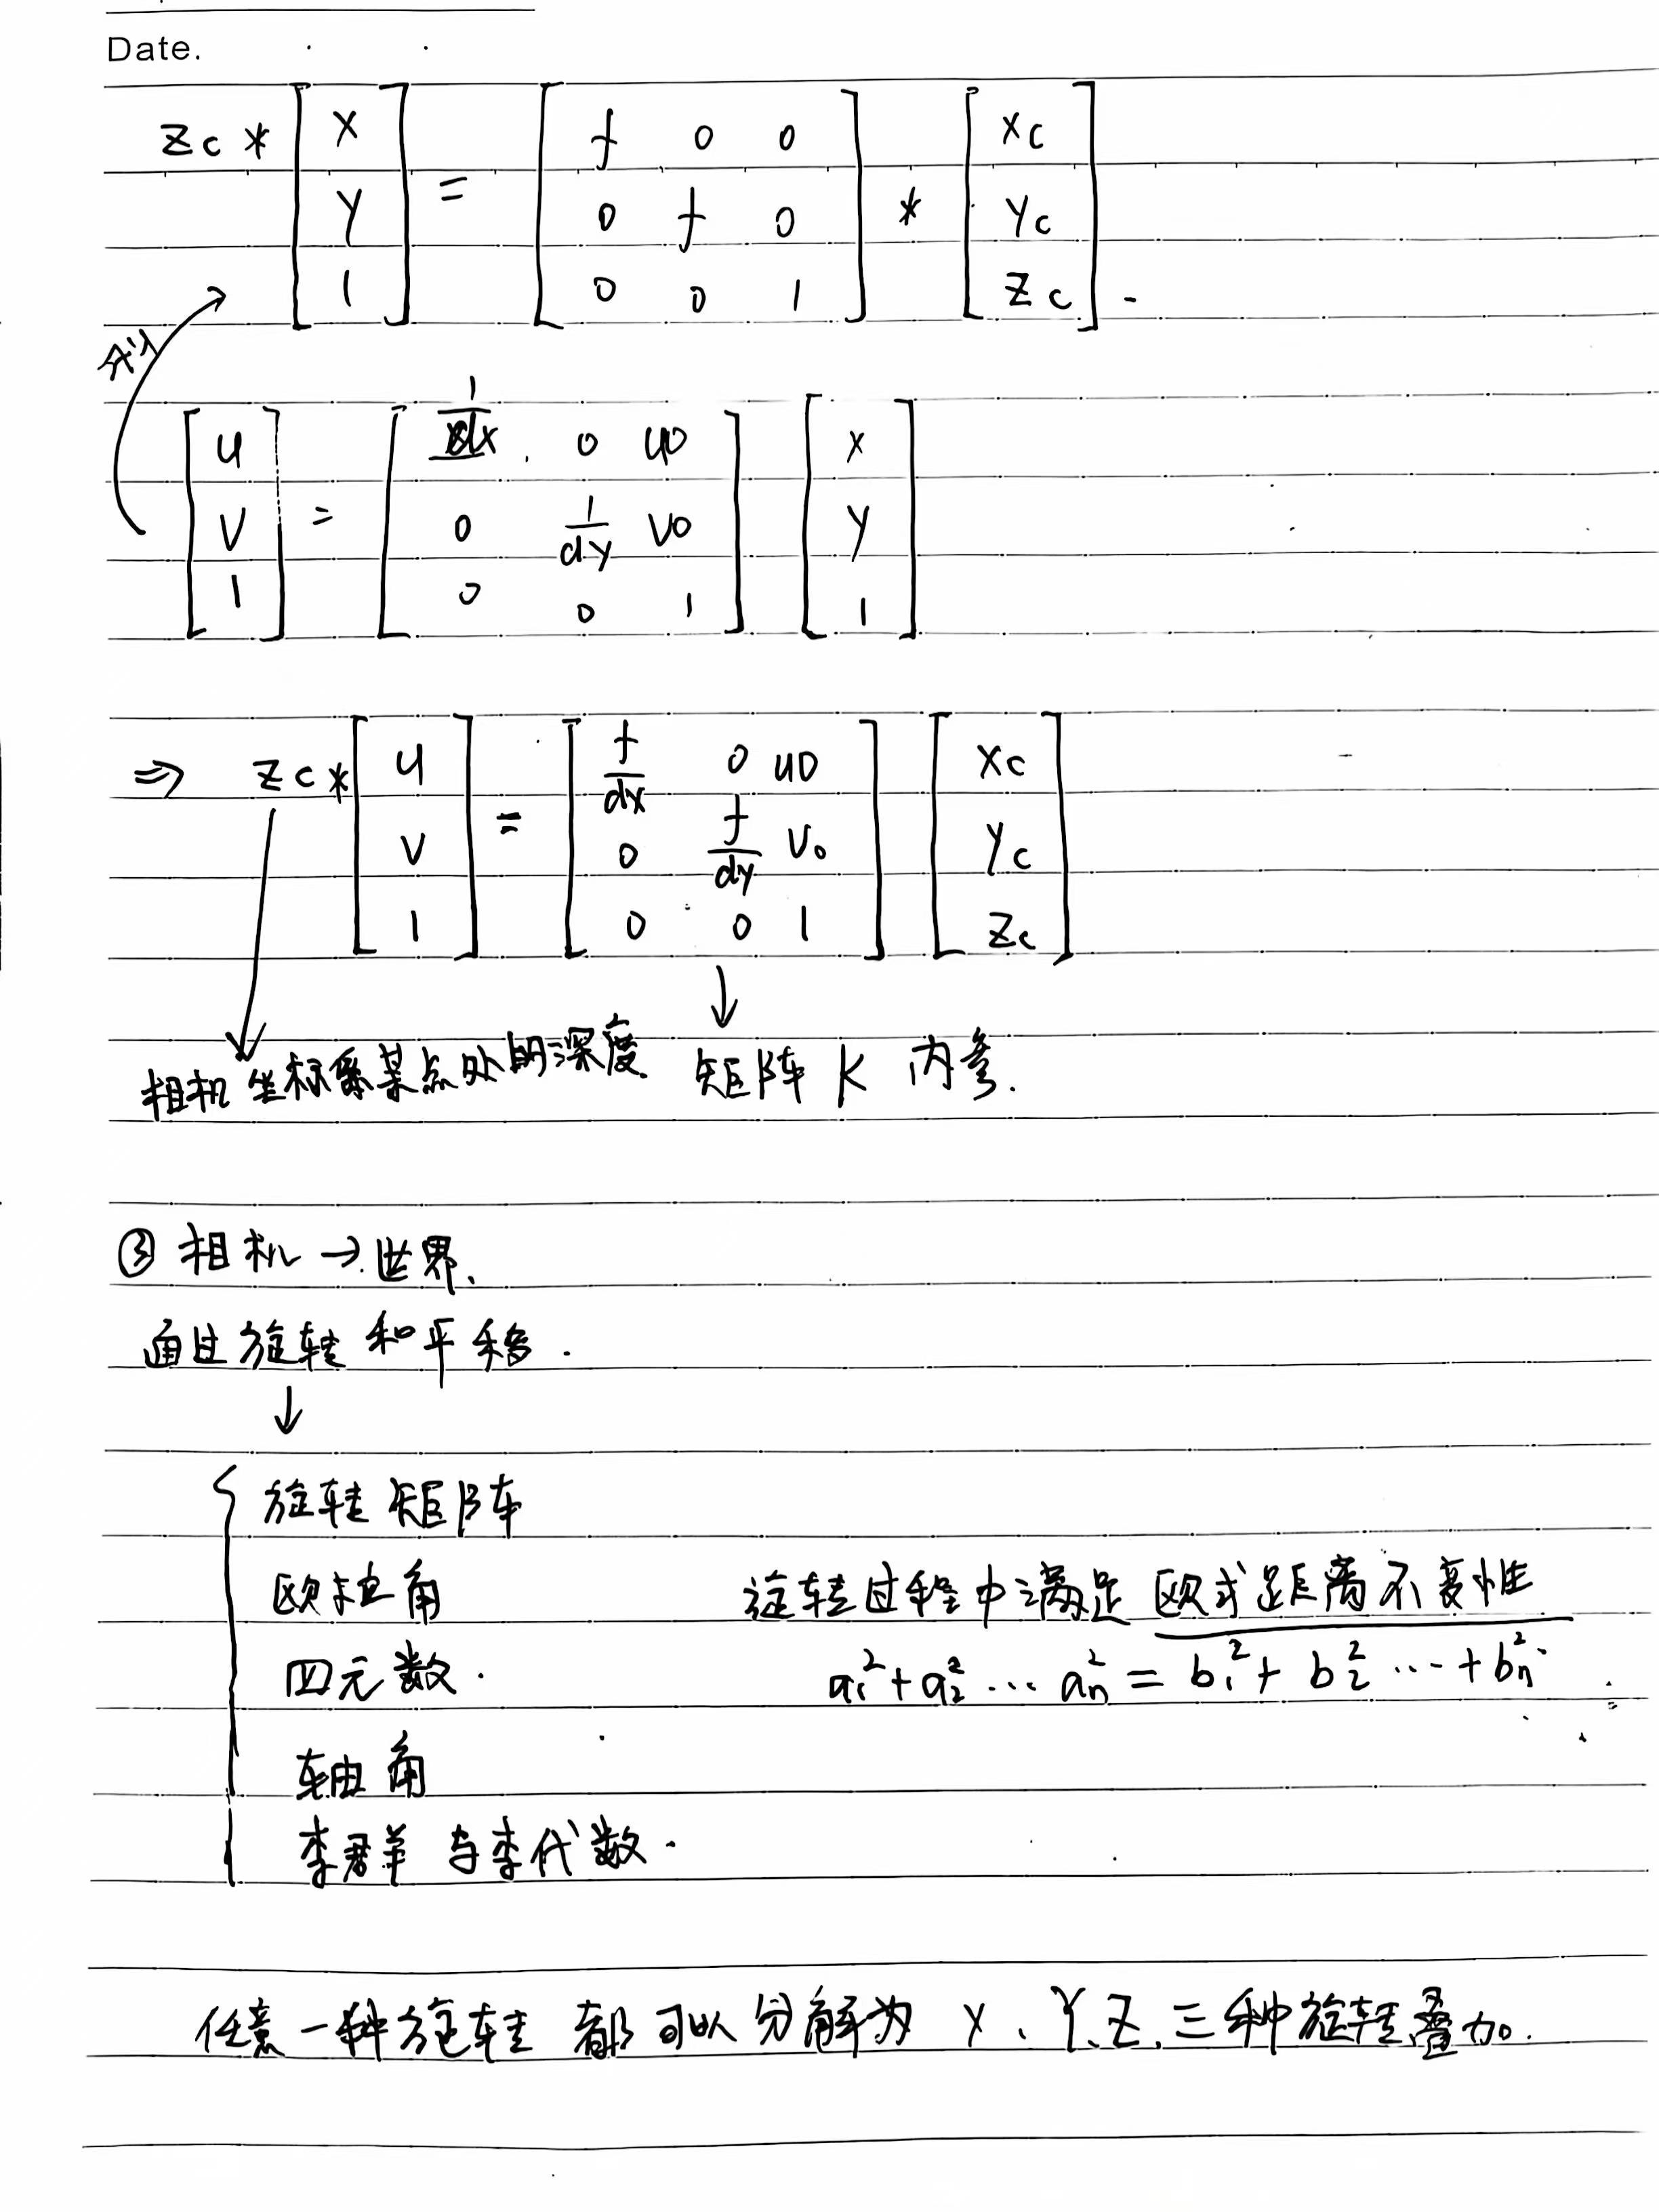 Date.
Zc * [x y 1] = [f 0 0; 0 f 0; 0 0 1] * [Xc Yc Zc]
代入
[u v 1] = [1/dx 0 u0; 0 1/dy v0; 0 0 1] [x y 1]
⇒ Zc * [u v 1] = [f/dx 0 u0; 0 f/dy v0; 0 0 1] [Xc Yc Zc]
相机坐标系某点处的深度 矩阵 K 内参.
③ 相机 → 世界.
通过旋转和平移.
↓
旋转矩阵
欧拉角 旋转过程中满足 欧式距离不变性
四元数. a₁²+a₂² ... aₙ² = b₁²+ b₂² ... + bₙ²
轴角
李群 与李代数.
任意一种旋转 都可以分解为 X、Y、Z, 三种旋转叠加.